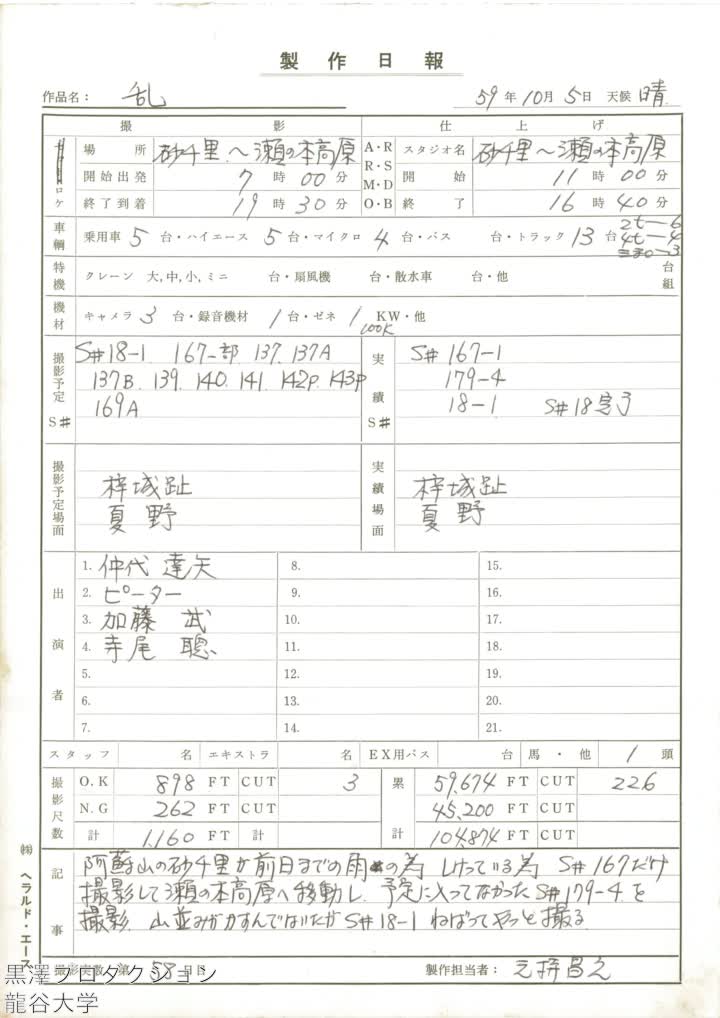 製作日報
作品名： 乱 59年10月5日 天候 晴
撮影 仕上げ
ロケ 場所 砂千里〜瀬の本高原 A・R R・S M・D O・B スタジオ名 砂千里〜瀬の本高原
開始出発 7時00分 開始 11時00分
終了到着 19時30分 終了 16時40分
車輌 乗用車 5台・ハイエース 5台・マイクロ 4台・バス 台・トラック 13台 2t-6 4t-4
特機 クレーン 大,中,小,ミニ 台・扇風機 台・散水車 台・他 台組
機材 キャメラ 3台・録音機材 1台・ゼネ 1 100K KW・他
撮影予定S# S#18-1 167一部 137. 137A 実績S# S#167-1
137B. 139. 140. 141. 142P. 143P 179-4
169A 18-1 S#18完了
撮影予定場面 梓城趾 実績場面 梓城趾
夏野 夏野
出演者 1. 仲代達矢 8. 15.
2. ピーター 9. 16.
3. 加藤 武 10. 17.
4. 寺尾 聰 11. 18.
5. 12. 19.
6. 13. 20.
7. 14. 21.
スタッフ 名 エキストラ 名 EX用バス 台 馬・他 1頭
撮影尺数 O.K 898 FT CUT 3 累計 59,674 FT CUT 226
N.G 262 FT CUT 45,200 FT CUT
計 1,160 FT 計 104,874 FT CUT
記事 阿蘇山の砂千里が前日までの雨の為 しけっている為 S#167だけ
撮影して瀬の本高原へ移動し、予定に入ってなかったS#179-4を
撮影. 山並みがかすんでいたがS#18-1 ねばってやっと撮る
撮影実数 第58日目 製作担当者：
㈱ヘラルド・エース
黒澤プロダクション
龍谷大学